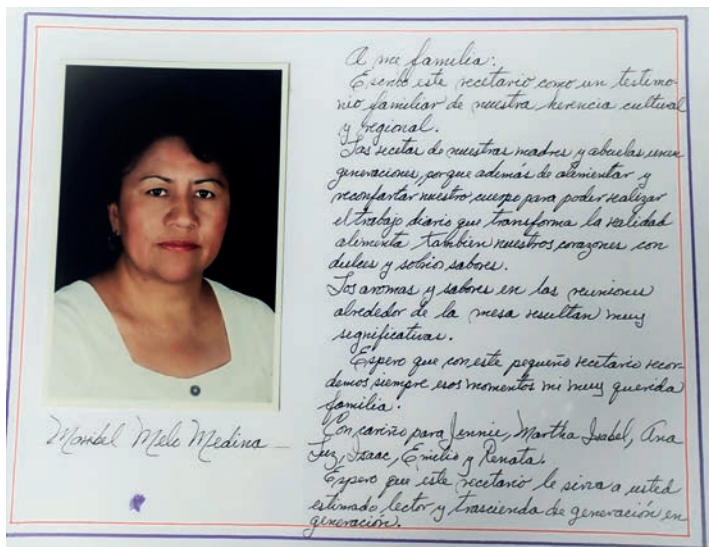 A mi familia:
Escribo este recetario como un testimo-
nio familiar de nuestra herencia cultural
y regional.
Las recetas de nuestras madres y abuelas unen
generaciones, porque además de alimentar y
reconfortar nuestro cuerpo para poder realizar
el trabajo diario que transforma la realidad
alimenta también nuestros corazones con
dulces y sobrio sabores.
Los aromas y sabores en las reuniones
alrededor de la mesa resultan muy
significativas.
Espero que con este pequeño recetario recor-
demos siempre esos momentos mi muy querida
familia.
Con cariño para Jennie, Martha Isabel, Ana
Luz, Isaac, Emilio y Renata.
Espero que este recetario le sirva a usted
estimado lector y trascienda de generación en
generación.
Maribel Melo Medina